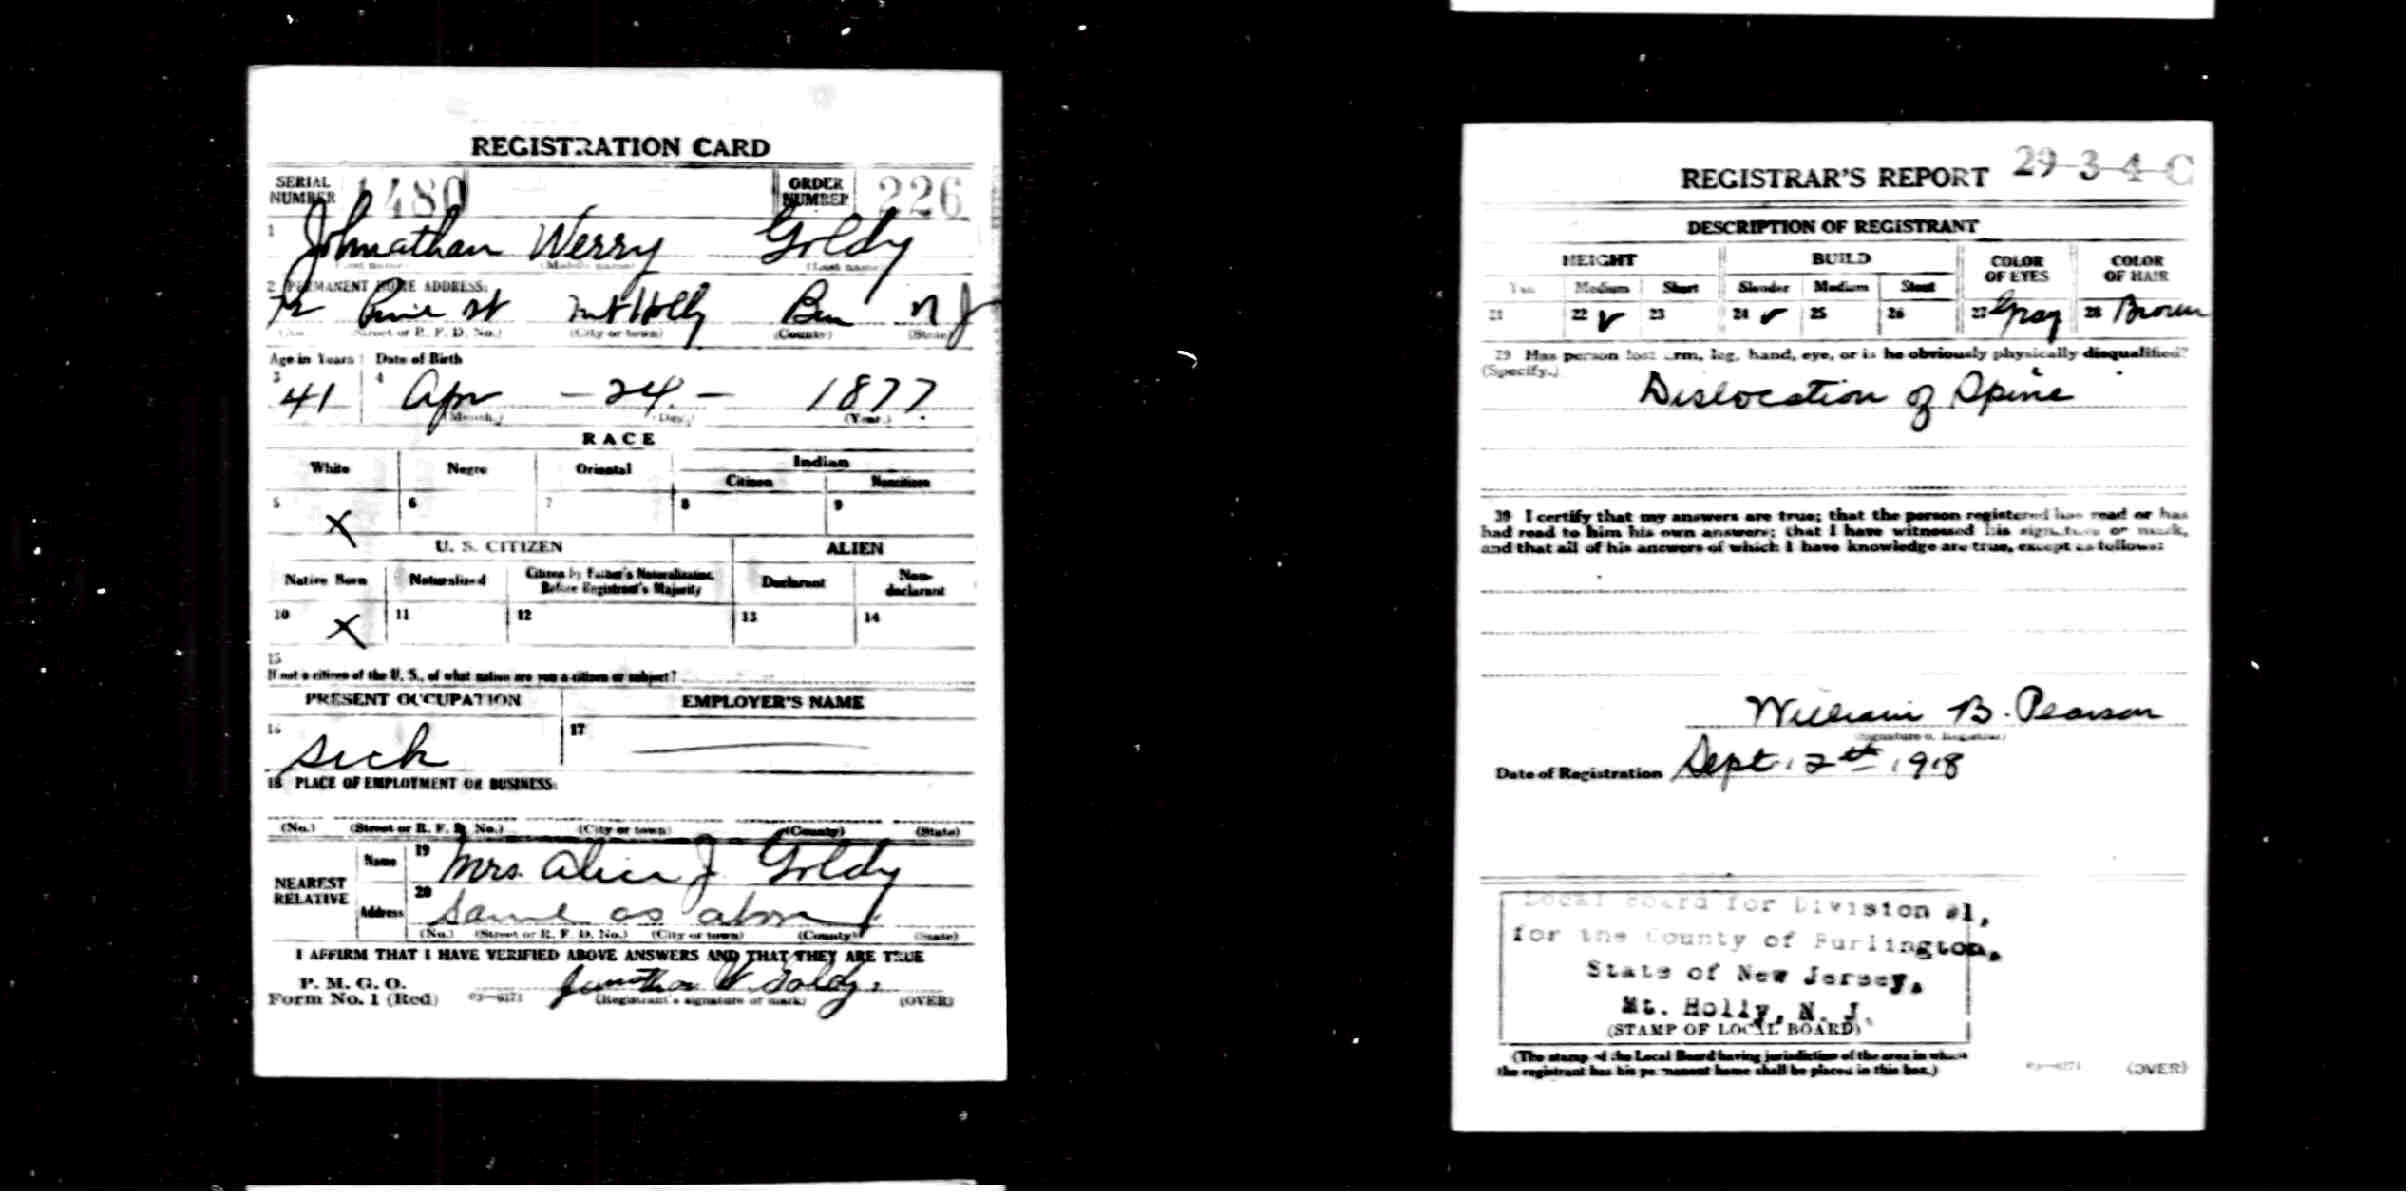 REGISTRATION CARD
SERIAL NUMBER 1480 ORDER NUMBER 226
1 Johnathan Werry Goldy
(First name) (Middle name) (Last name)
2 PERMANENT HOME ADDRESS:
72 Pine St Mt Holly Bur N J
(No.) (Street or R. F. D. No.) (City or town) (County) (State)
Age in Years Date of Birth
3 41 4 Apr - 24. - 1877
(Month.) (Day.) (Year.)
RACE
White Negro Oriental Indian
Citizen Noncitizen
5 X 6 7 8 9
U. S. CITIZEN ALIEN
Native Born Naturalized Citizen by Father's Naturalization Before Registrant's Majority Declarant Non-declarant
10 X 11 12 13 14
15
If not a citizen of the U. S., of what nation are you a citizen or subject?
PRESENT OCCUPATION EMPLOYER'S NAME
16 Sick 17
18 PLACE OF EMPLOYMENT OR BUSINESS:
(No.) (Street or R. F. D. No.) (City or town) (County) (State)
NEAREST RELATIVE Name 19 Mrs. Alice J Goldy
Address 20 Same as above
(No.) (Street or R. F. D. No.) (City or town) (County) (State)
I AFFIRM THAT I HAVE VERIFIED ABOVE ANSWERS AND THAT THEY ARE TRUE
P. M. G. O.
Form No. 1 (Red) 03—6171 Jonathan W. Goldy
(Registrant's signature or mark) (OVER)
REGISTRAR'S REPORT 29-3-4-C
DESCRIPTION OF REGISTRANT
HEIGHT BUILD COLOR OF EYES COLOR OF HAIR
Tall Medium Short Slender Medium Stout
21 22 ✓ 23 24 ✓ 25 26 27 Gray 28 Brown
29 Has person lost arm, leg, hand, eye, or is he obviously physically disqualified?
(Specify.) Dislocation of Spine
30 I certify that my answers are true; that the person registered has read or has
had read to him his own answers; that I have witnessed his signature or mark,
and that all of his answers of which I have knowledge are true, except as follows:
William B. Pearson
(Signature of Registrar)
Date of Registration Sept. 12th 1918
Local Board for Division #1,
for the County of Burlington,
State of New Jersey,
Mt. Holly, N. J.
(STAMP OF LOCAL BOARD)
(The stamp of the Local Board having jurisdiction of the area in which
the registrant has his permanent home shall be placed in this box.)
03—6171 (OVER)